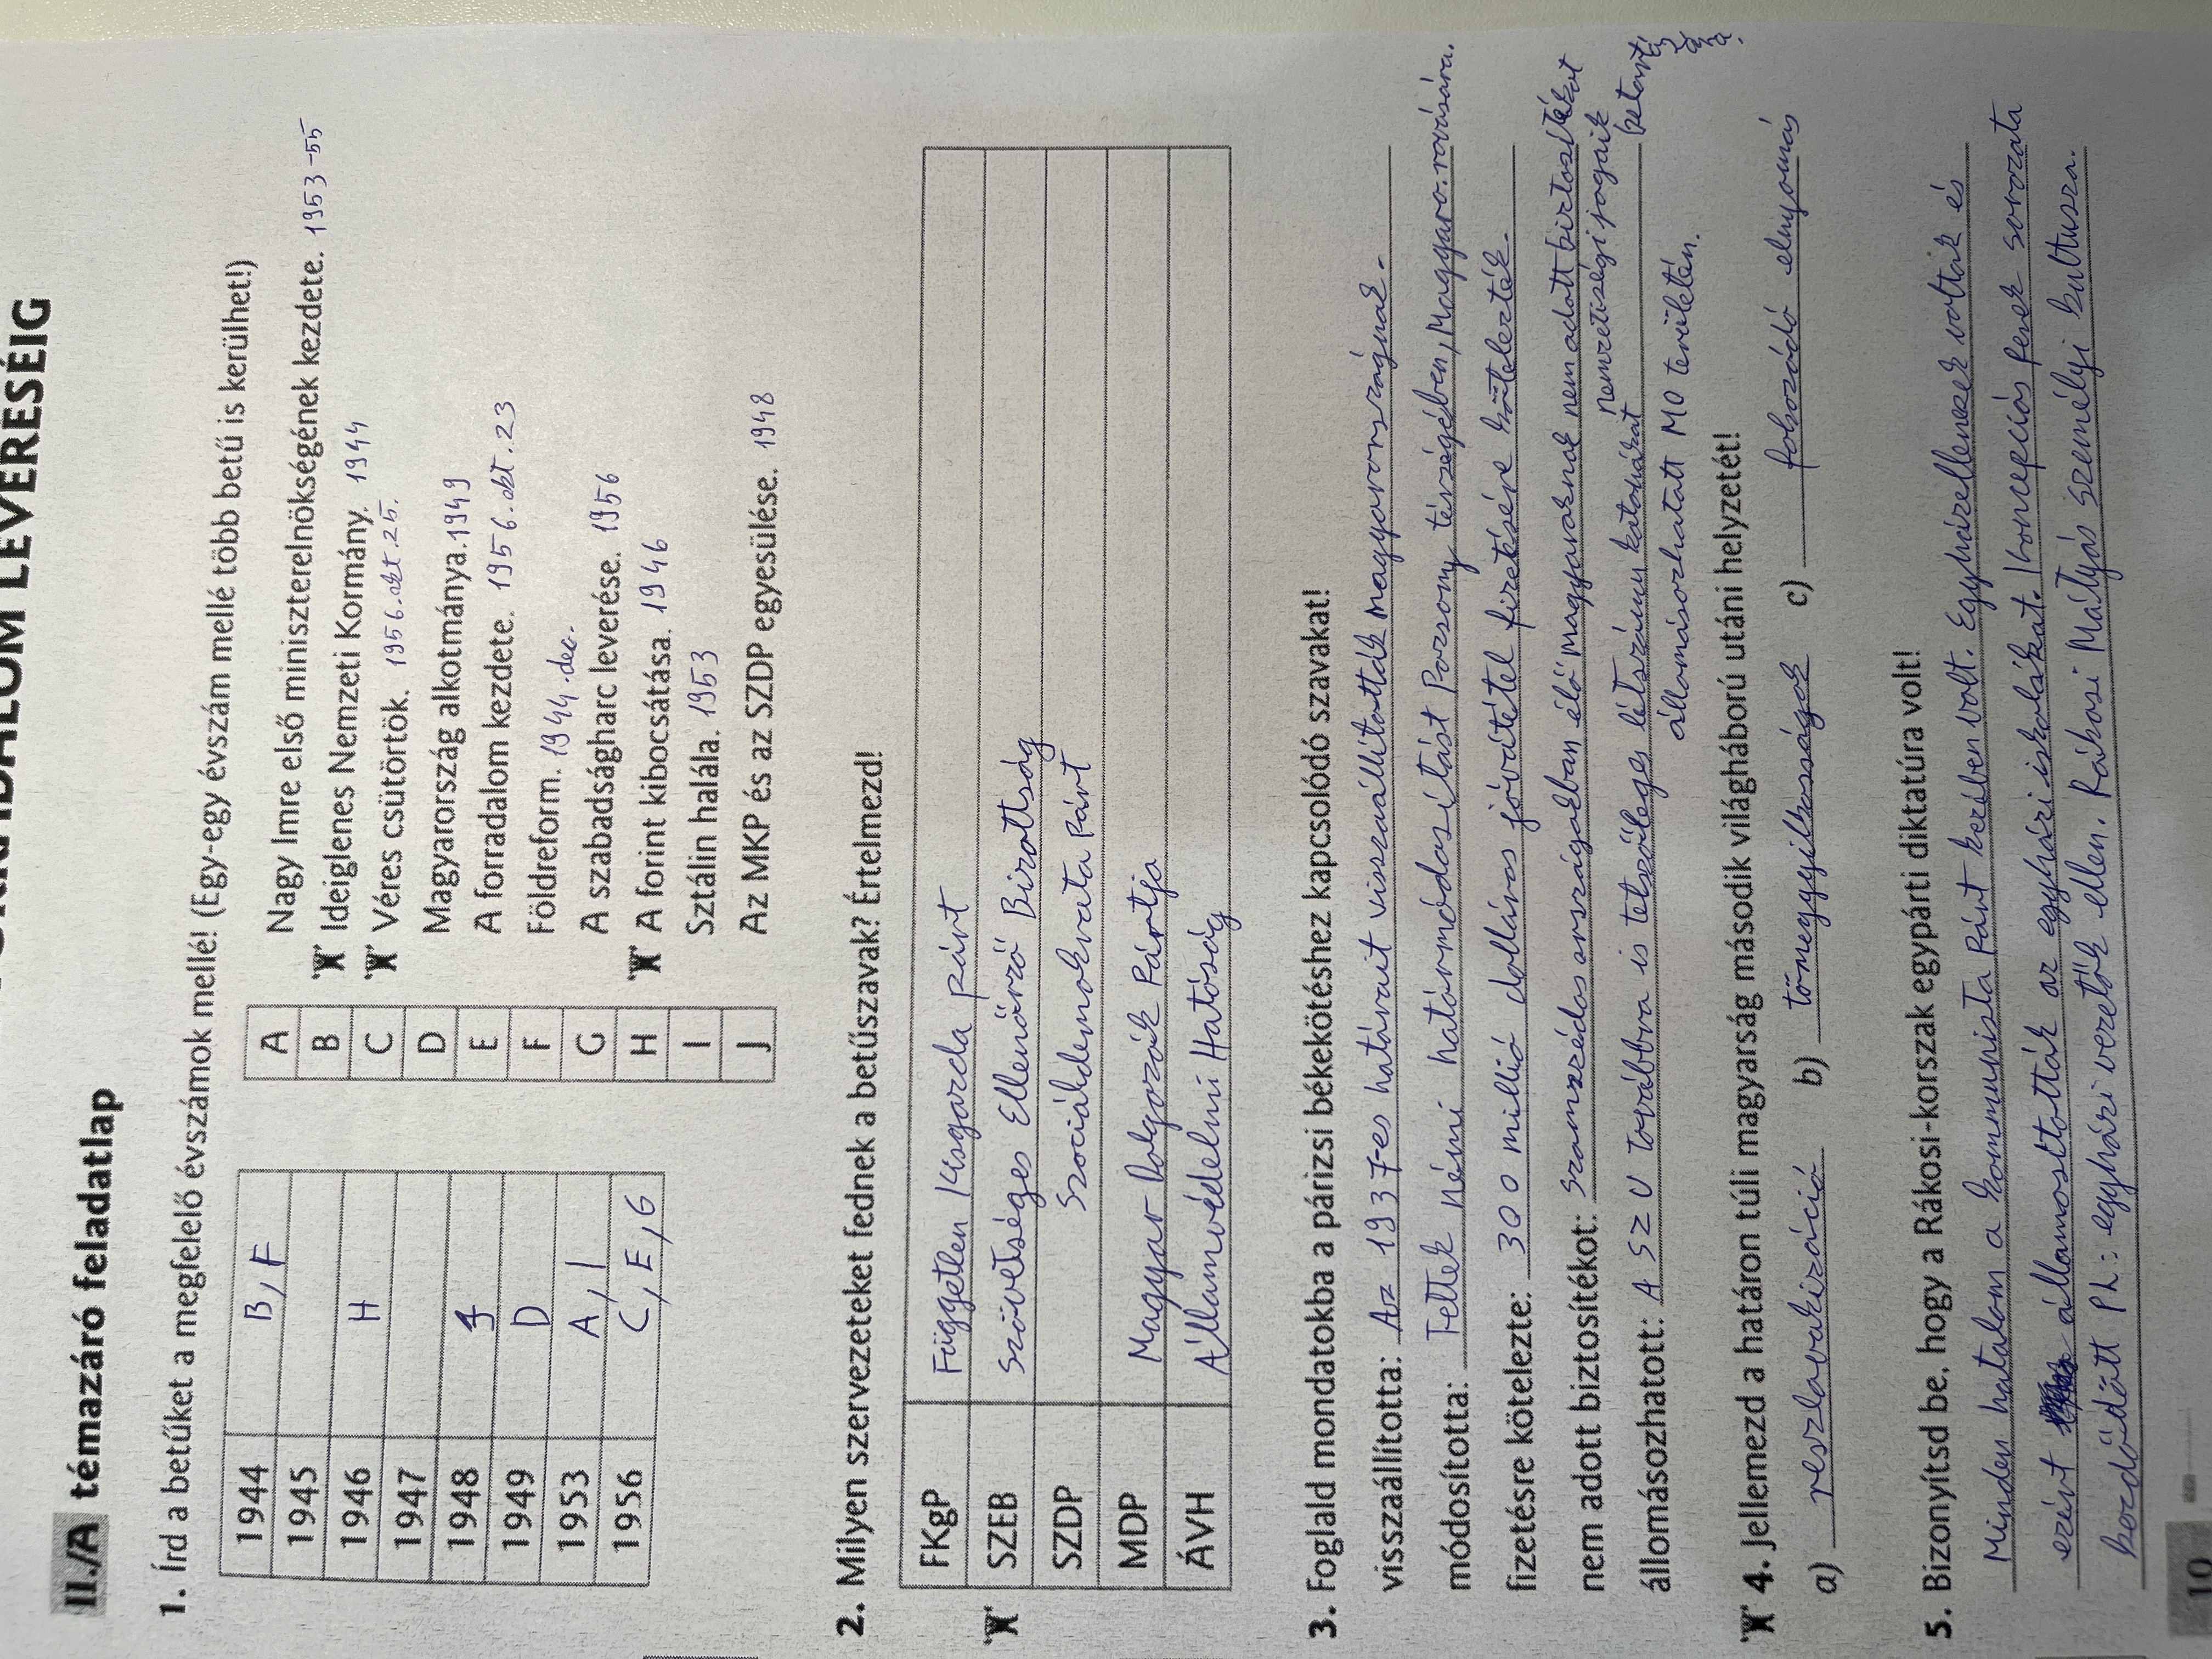 FORRADALOM LEVERÉSÉIG
II./A témazáró feladatlap
1. Írd a betűket a megfelelő évszámok mellé! (Egy-egy évszám mellé több betű is kerülhet!)
1944 B, F
1945
1946 H
1947
1948 J
1949 D
1953 A, I
1956 C, E, G
A Nagy Imre első miniszterelnökségének kezdete. 1953-55
B Ideiglenes Nemzeti Kormány. 1944
C Véres csütörtök. 1956. okt. 25.
D Magyarország alkotmánya. 1949
E A forradalom kezdete. 1956. okt. 23
F Földreform. 1944. dec.
G A szabadságharc leverése. 1956
H A forint kibocsátása. 1946
I Sztálin halála. 1953
J Az MKP és az SZDP egyesülése. 1948
2. Milyen szervezeteket fednek a betűszavak? Értelmezd!
FKgP Független Kisgazda párt
SZEB Szövetséges Ellenőrző Bizottság
SZDP Szociáldemokrata Párt
MDP Magyar Dolgozók Pártja
ÁVH Államvédelmi Hatóság
3. Foglald mondatokba a párizsi békekötéshez kapcsolódó szavakat!
visszaállította: Az 1937-es határait visszaállították Magyarországnak.
módosította: Tettek némi határmódosítást Pozsony térségében, Magyaro. rovására.
fizetésre kötelezte: 300 millió dolláros jóvátétel fizetésére kötelezték.
nem adott biztosítékot: Szomszédos országokban élő magyaroknak nem adott biztosítékot
nemzetiségi jogaik betartására.
állomásozhatott: A SZU továbbra is tetszőleges létszámú katonákat
állomásozhatott MO területén.
4. Jellemezd a határon túli magyarság második világháború utáni helyzetét!
a) reszlovakizáció b) tömeggyilkosságok c) fokozódó elnyomás
5. Bizonyítsd be, hogy a Rákosi-korszak egypárti diktatúra volt!
Minden hatalom a kommunista Párt kezében volt. Egyházellenesek voltak és
ezért államosították az egyházi iskolákat. Koncepciós perek sorozata
kezdődött Pl.: egyházi vezetők ellen. Rákosi Mátyás személyi kultusza.
10